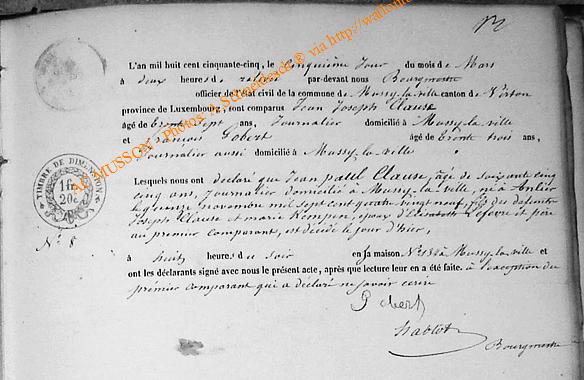 L'an mil huit cent cinquante-cinq, le cinquième jour du mois de Mars
à deux heures de relevée par-devant nous Bourgmestre
officier de l'état civil de la commune de Mussy-la-ville canton de Virton
province de Luxembourg, sont comparus Jean Joseph Clause
âgé de trente sept ans, Journalier domicilié à Mussy-la ville
et François Gobert âgé de trente trois ans,
Journalier aussi domicilié à Mussy-la ville
Lesquels nous ont déclaré que Jean paul Clause, âgé de soixante cinq
cinq ans, journalier domicilié à Mussy-la ville, né à Anlier
le quinze novembre mil sept cent quatre vingt neuf, fils des défunts
Joseph Clause et marie Kompen, époux d'Elisabeth Lefevre et père
au premier comparant, est décédé le jour d'hier,
à huit heures du soir en sa maison N° 138 à Mussy-la-ville et
ont les déclarants signé avec nous le présent acte, après que lecture leur en a été faite. à l'exception du
premier comparant qui a déclaré ne savoir ecrire
Gobert
Bourgmestre
N° 8
TIMBRE DE DIMENSION
1f
20c
MUSSON - Photos: D. Schoenbach © via http://wallonia